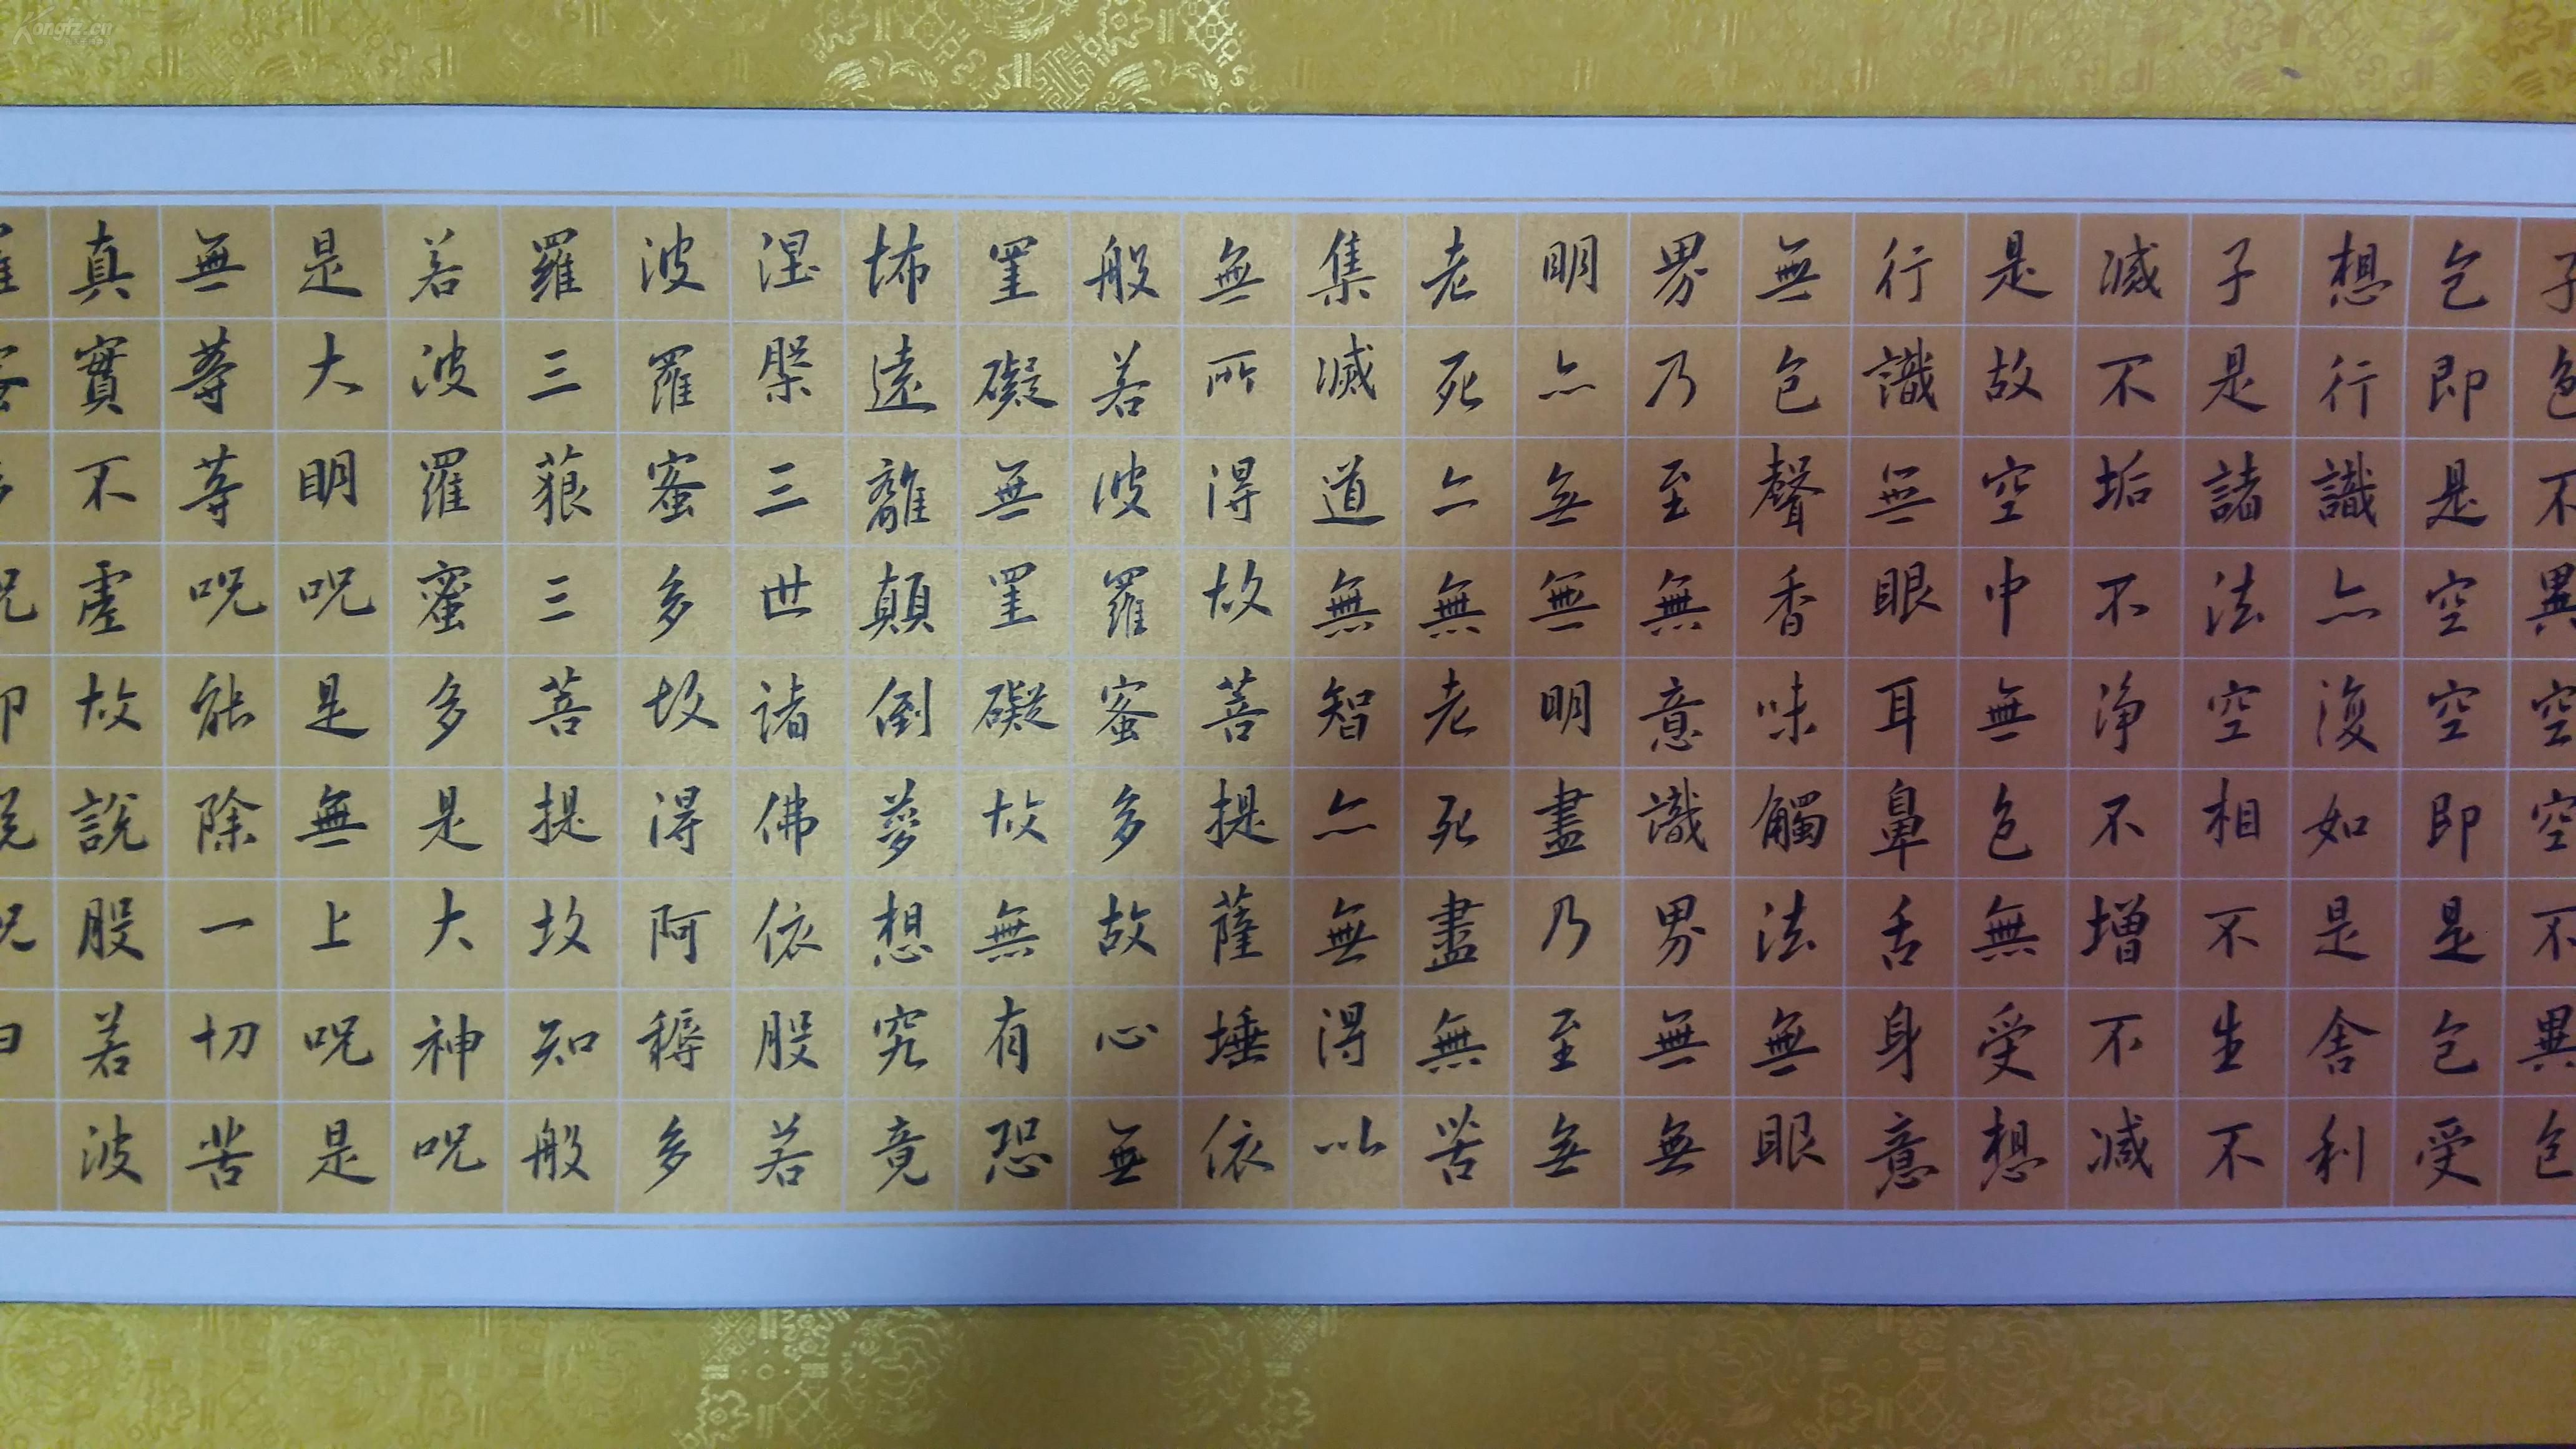 子色不異空空不異色
色即是空空即是色受
想行識亦復如是舍利
子是諸法空相不生不
滅不垢不净不增不减
是故空中無色無受想
行識無眼耳鼻舌身意
無色聲香味觸法無眼
界乃至無意識界無無
明亦無無明盡乃至無
老死亦無老死盡無苦
集滅道無智亦無得以
無所得故菩提薩埵依
般若波羅蜜多故心無
罣礙無罣礙故無有恐
怖遠離顛倒夢想究竟
涅槃三世諸佛依般若
波羅蜜多故得阿耨多
羅三藐三菩提故知般
若波羅蜜多是大神咒
是大明咒是無上咒是
無等等咒能除一切苦
真實不虛故說般若波
Kongfz.cn